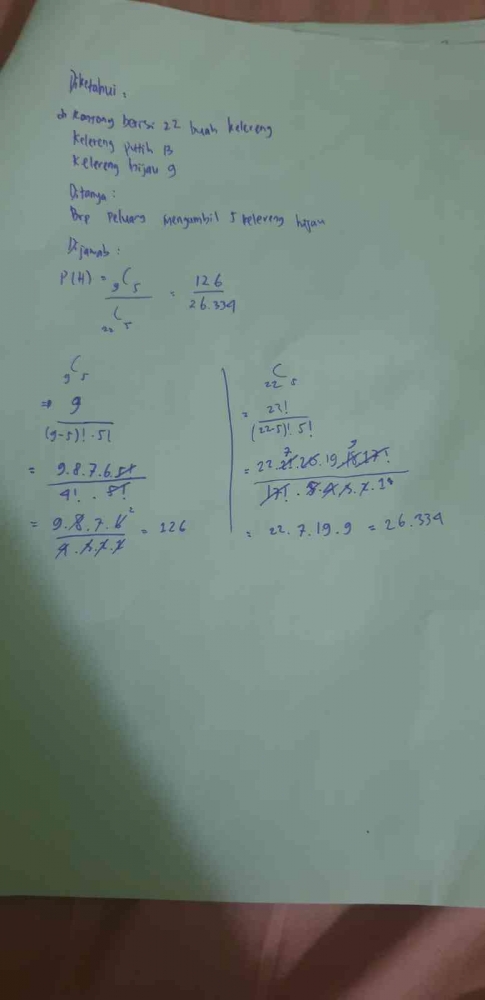 Diketahui :
di Kantong berisi 22 buah kelereng
Kelereng putih 13
Kelereng hijau 9
Ditanya :
Brp Peluang mengambil 5 kelereng hijau
Dijawab :
P(H) = ₉C₅ / ₂₂C₅ = 126 / 26.334
₉C₅
⇒ 9 / (9-5)! . 5!
= 9.8.7.6.5! / 4! . 5!
= 9.8.7.6 2 / 4.3.2.1 = 126
₂₂C₅
= 22! / (22-5)! 5!
= 22.21.20.19.18.17! 7 9 / 17! . 5.4.3.2.1
= 22.7.19.9 = 26.334